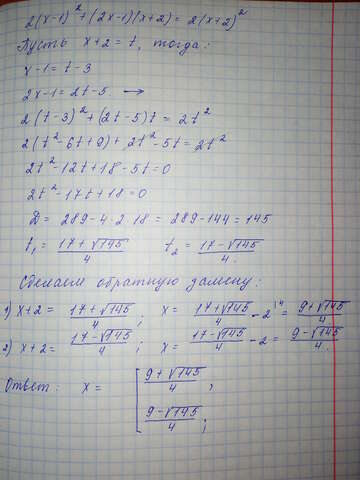 2(x-1)² + (2x-1)(x+2) = 2(x+2)²
Пусть x+2 = t, тогда:
x-1 = t-3
2x-1 = 2t-5 →
2(t-3)² + (2t-5)t = 2t²
2(t²-6t+9) + 2t²-5t = 2t²
2t²-12t+18-5t=0
2t²-17t+18=0
D = 289-4·2·18 = 289-144 = 145
t₁ = (17+√145)/4 t₂ = (17-√145)/4.
Сделаем обратную замену:
1) x+2 = (17+√145)/4; x = (17+√145)/4 - 2^14 = (9+√145)/4
2) x+2 = (17-√145)/4; x = (17-√145)/4 - 2 = (9-√145)/4.
Ответ: x = [ (9+√145)/4,
(9-√145)/4;